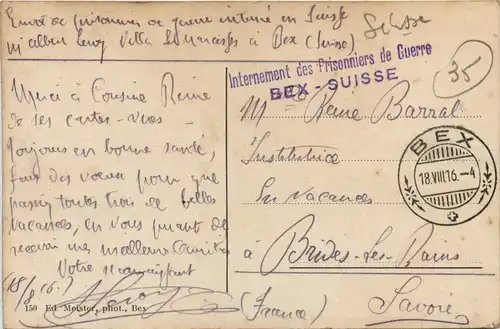 Envoi de prisonnier de guerre interné en Suisse
M Albert Levy Villa Les Narcisses à Bex (Suisse)
Suisse
35
Internement des Prisonniers de Guerre
BEX - SUISSE
Merci à Cousine Reine
de ses cartes-vues
Toujours en bonne santé,
fais des vœux pour que
passiez toutes trois de belles
vacances, en vous priant de
recevoir mes meilleures amitiés
Votre reconnaissant
18/8 1916
Melle Reine Barral
Institutrice
en vacances
à Brides-les-Bains
Savoie
(France)
BEX
18.VIII.16.-4
150 Ed. Meister, phot., Bex